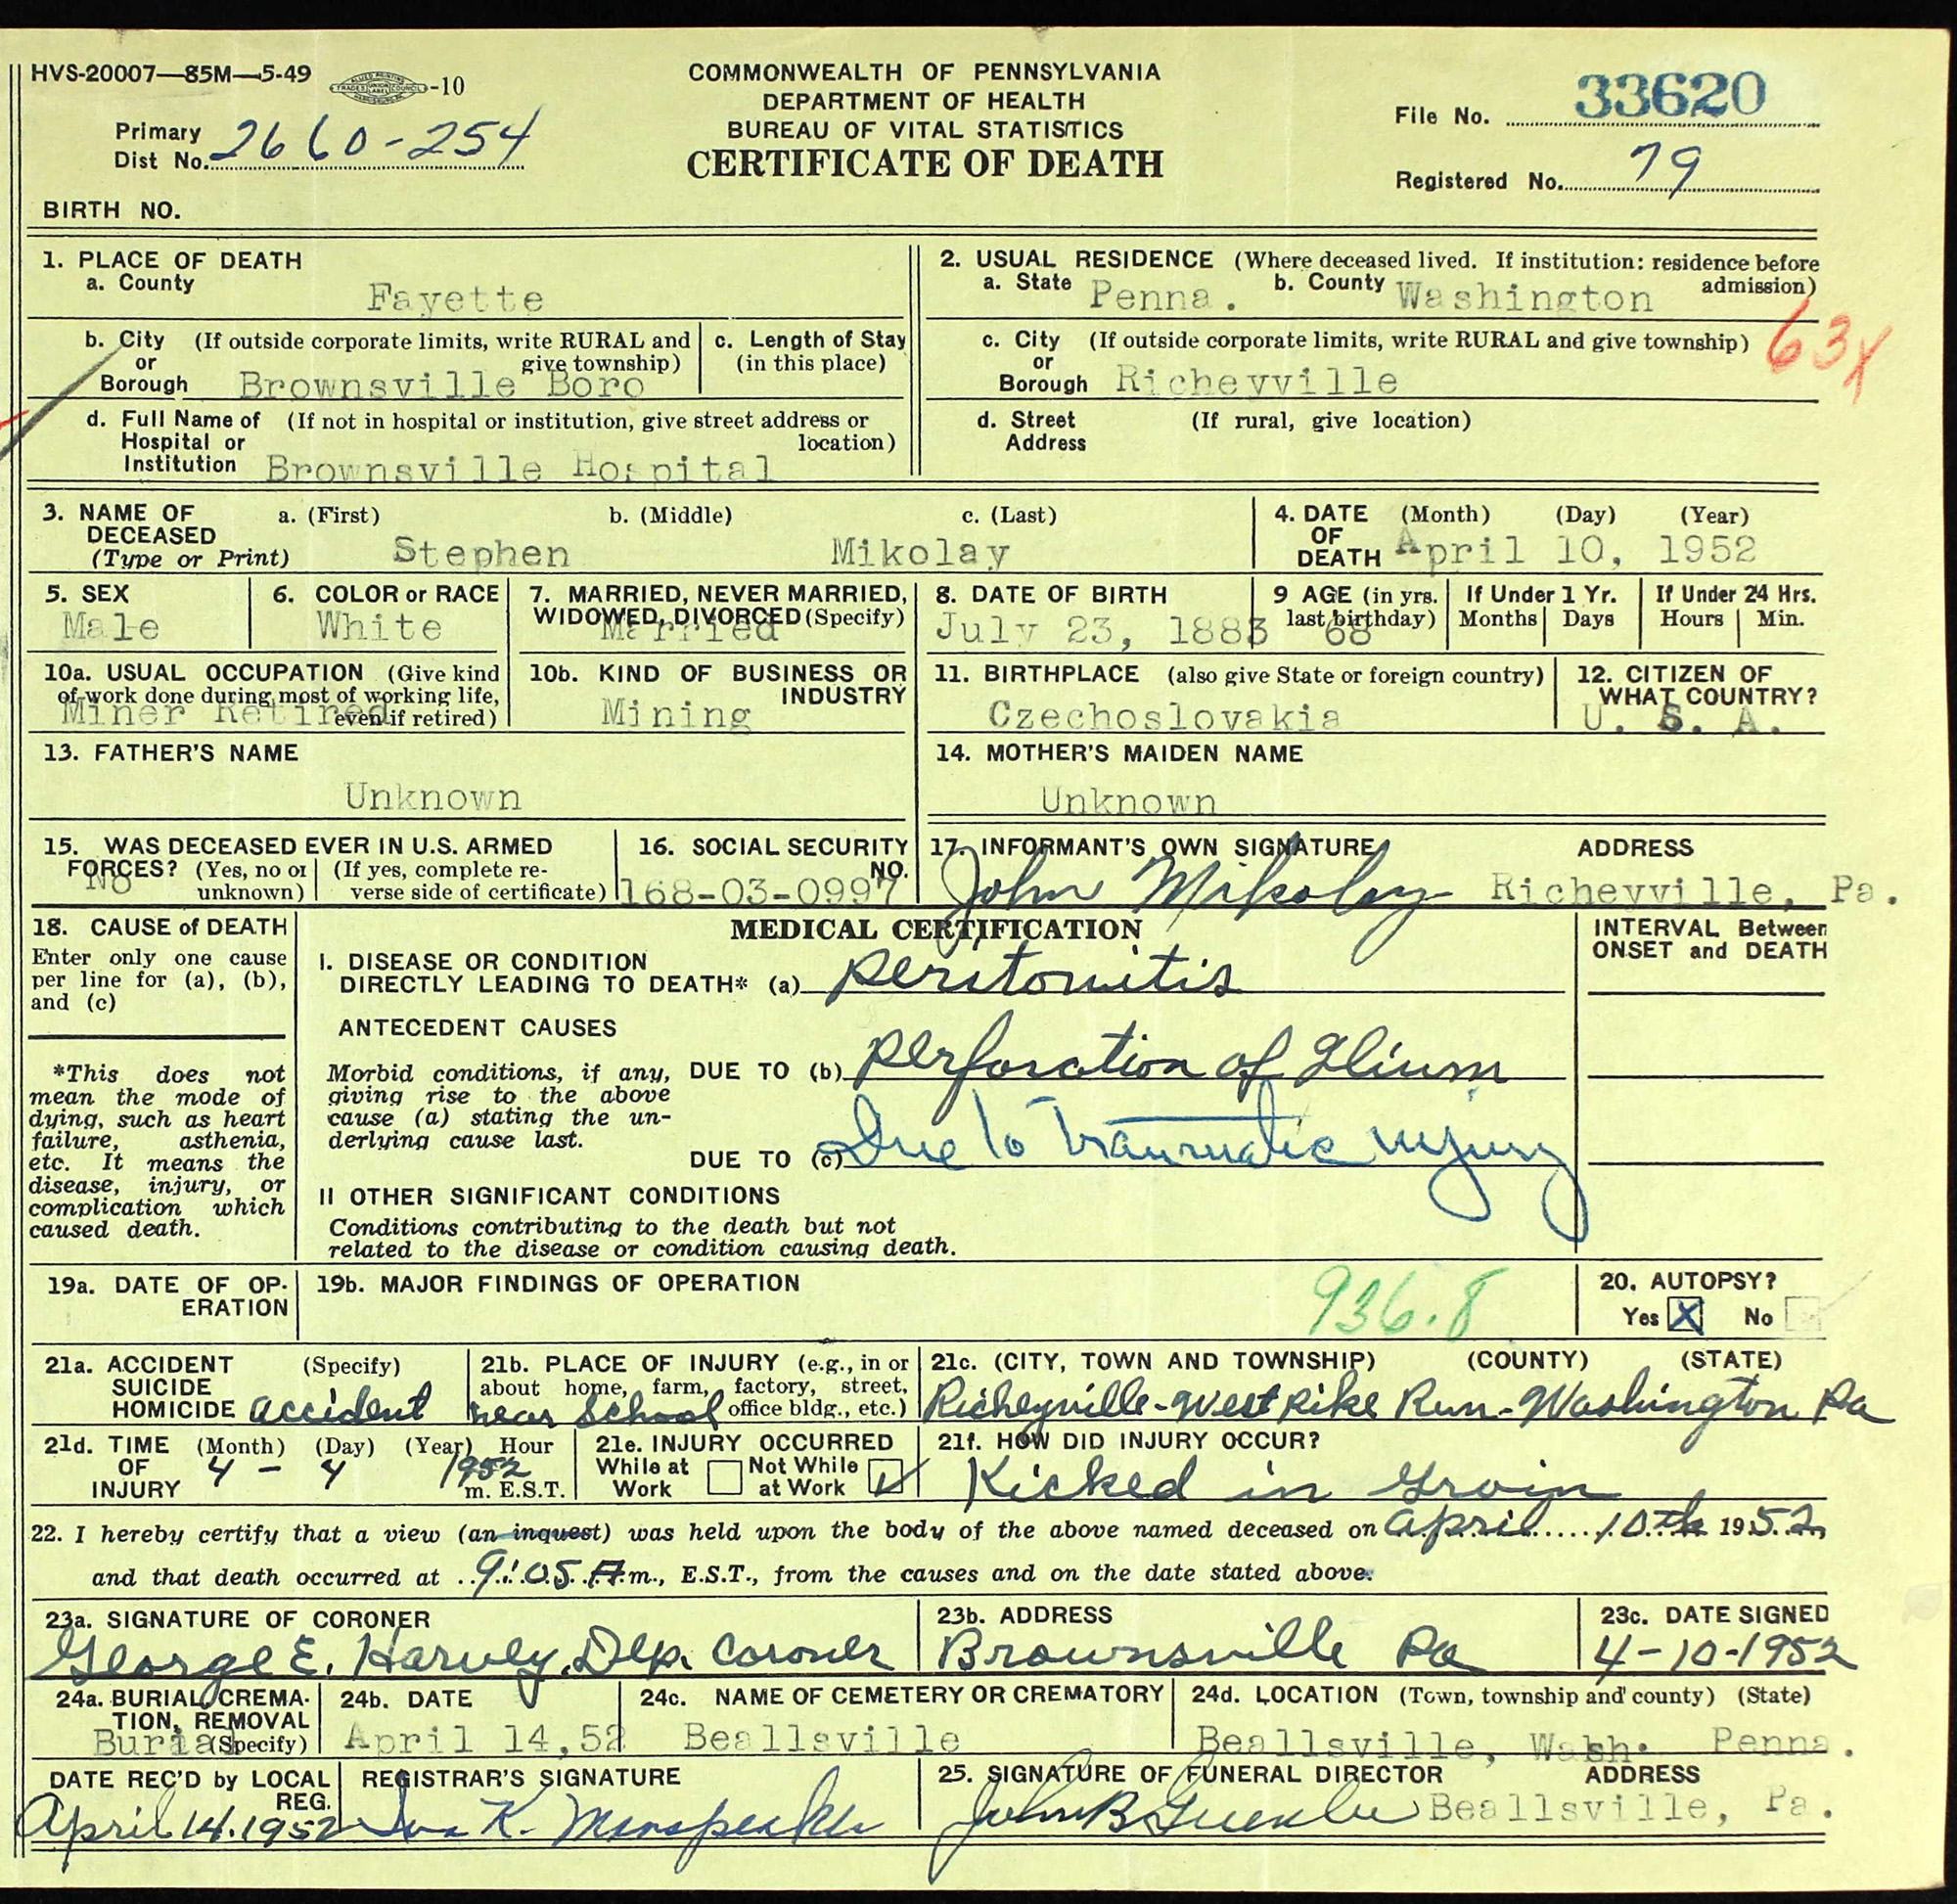 HVS-20007—85M—5-49 -10
COMMONWEALTH OF PENNSYLVANIA
DEPARTMENT OF HEALTH
BUREAU OF VITAL STATISTICS
CERTIFICATE OF DEATH
File No. 33620
Primary Dist No. 2660-254
Registered No. 79
BIRTH NO.
1. PLACE OF DEATH
a. County Fayette
b. City or Borough (If outside corporate limits, write RURAL and give township) Brownsville Boro
c. Length of Stay (in this place)
d. Full Name of Hospital or Institution (If not in hospital or institution, give street address or location) Brownsville Hospital
2. USUAL RESIDENCE (Where deceased lived. If institution: residence before admission)
a. State Penna. b. County Washington
63X
c. City or Borough (If outside corporate limits, write RURAL and give township) Richeyville
d. Street Address (If rural, give location)
3. NAME OF DECEASED (Type or Print) a. (First) Stephen b. (Middle) c. (Last) Mikolay
4. DATE OF DEATH (Month) (Day) (Year) April 10, 1952
5. SEX Male
6. COLOR or RACE White
7. MARRIED, NEVER MARRIED, WIDOWED, DIVORCED (Specify) Married
8. DATE OF BIRTH July 23, 1883
9 AGE (in yrs. last birthday) 68
If Under 1 Yr. Months Days
If Under 24 Hrs. Hours Min.
10a. USUAL OCCUPATION (Give kind of work done during most of working life, even if retired) Miner Retired
10b. KIND OF BUSINESS OR INDUSTRY Mining
11. BIRTHPLACE (also give State or foreign country) Czechoslovakia
12. CITIZEN OF WHAT COUNTRY? U. S. A.
13. FATHER'S NAME Unknown
14. MOTHER'S MAIDEN NAME Unknown
15. WAS DECEASED EVER IN U.S. ARMED FORCES? (Yes, no or unknown) (If yes, complete reverse side of certificate) No
16. SOCIAL SECURITY NO. 168-03-0997
17. INFORMANT'S OWN SIGNATURE John Mikolay
ADDRESS Richeyville, Pa.
18. CAUSE of DEATH
Enter only one cause per line for (a), (b), and (c)
*This does not mean the mode of dying, such as heart failure, asthenia, etc. It means the disease, injury, or complication which caused death.
MEDICAL CERTIFICATION
INTERVAL Between ONSET and DEATH
I. DISEASE OR CONDITION DIRECTLY LEADING TO DEATH* (a) Peritonitis
ANTECEDENT CAUSES
Morbid conditions, if any, giving rise to the above cause (a) stating the underlying cause last.
DUE TO (b) Perforation of Ilium
DUE TO (c) Due to Traumatic injury
II OTHER SIGNIFICANT CONDITIONS
Conditions contributing to the death but not related to the disease or condition causing death.
19a. DATE OF OPERATION
19b. MAJOR FINDINGS OF OPERATION
936.8
20. AUTOPSY? Yes X No
21a. ACCIDENT SUICIDE HOMICIDE (Specify) accident
21b. PLACE OF INJURY (e.g., in or about home, farm, factory, street, office bldg., etc.) near School
21c. (CITY, TOWN AND TOWNSHIP) (COUNTY) (STATE) Richeyville-West Pike Run-Washington Pa
21d. TIME OF INJURY (Month) (Day) (Year) Hour 4 - 4 1952 m. E.S.T.
21e. INJURY OCCURRED While at Work Not While at Work ✓
21f. HOW DID INJURY OCCUR? Kicked in Groin
22. I hereby certify that a view (an inquest) was held upon the body of the above named deceased on April 10th 1952,
and that death occurred at 9:05 A.m., E.S.T., from the causes and on the date stated above.
23a. SIGNATURE OF CORONER George E. Harvey, Dep. Coroner
23b. ADDRESS Brownsville Pa
23c. DATE SIGNED 4-10-1952
24a. BURIAL, CREMATION, REMOVAL (Specify) Burial
24b. DATE April 14,52
24c. NAME OF CEMETERY OR CREMATORY Beallsville
24d. LOCATION (Town, township and county) (State) Beallsville, Wash. Penna.
DATE REC'D by LOCAL REG. April 14.1952
REGISTRAR'S SIGNATURE K.
25. SIGNATURE OF FUNERAL DIRECTOR John B.
ADDRESS Beallsville, Pa.